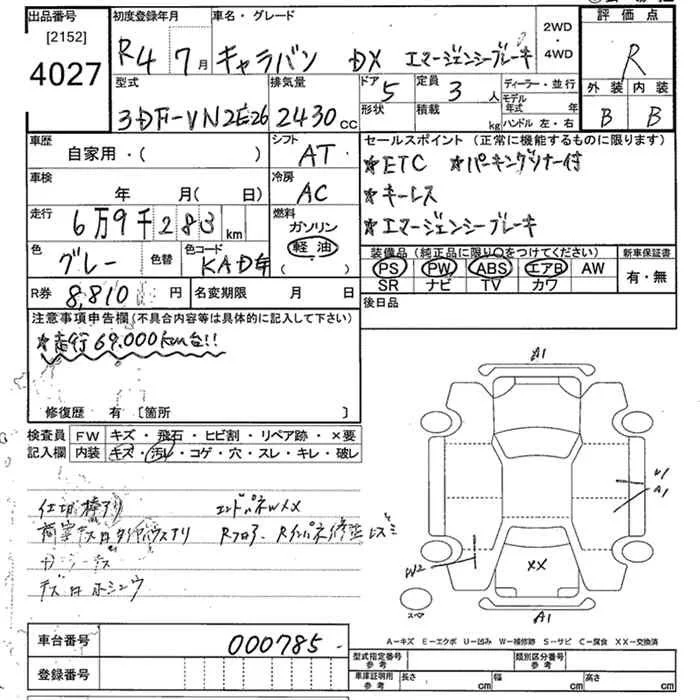 出品番号 初度登録年月 車名・グレード 2WD・4WD 評価点
[2152]
4027 R4 7月 キャラバン DX エマージェンシーブレーキ R
型式 排気量 ドア 5 定員 3人 ディーラー・並行 外装 内装
形状 積載 kg モデル年式 年
3DF-VN2E26 2430cc ハンドル 左・右 B B
車歴 シフト セールスポイント(正常に機能するものに限ります)
自家用・( ) AT ★ETC ★パーキングソナー付
車検 冷房 ★キーレス
年 月( 日) AC ★エマージェンシーブレーキ
走行 燃料
6万9千283km ガソリン
軽油
( )
色 色替 色コード 装備品(純正品に限り○をつけてください) 新車保証書
グレー KAD PS PW ABS エアB AW 有・無
SR ナビ TV カワ
R券 8,810円 名変期限 月 日 後日品
注意事項申告欄(不具合内容等は具体的に記入して下さい)
★走行69.000km台!!
修復歴 有 [箇所 ]
検査員 FW キズ・飛石・ヒビ割・リペア跡・×要
記入欄 内装 キズ・汚レ・コゲ・穴・スレ・キレ・破レ
A1
U1
A1
W2
XX
スペア
A1
エンドパネWXX
A-キズ E-エクボ U-凹み W-補修跡 S-サビ C-腐食 XX-交換済
車台番号 000785
登録番号
型式指定番号 参考 類別区分番号 参考
車庫証明用 参考 長さ cm 幅 cm 高さ cm